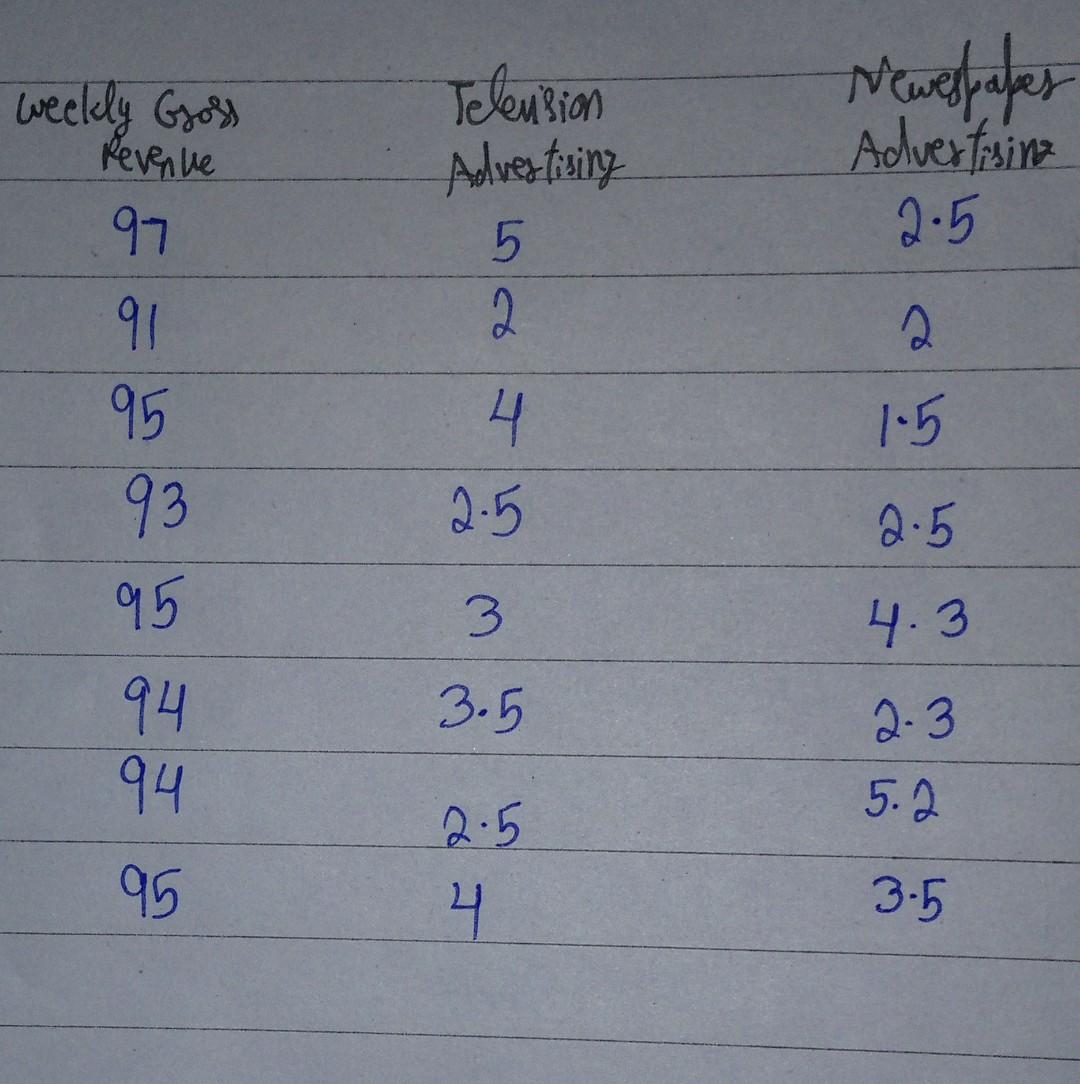 Weekly Gross Television Newespaper
Revenue Advertising Advertising
97 5 2.5
91 2 2
95 4 1.5
93 2.5 2.5
95 3 4.3
94 3.5 2.3
94 2.5 5.2
95 4 3.5